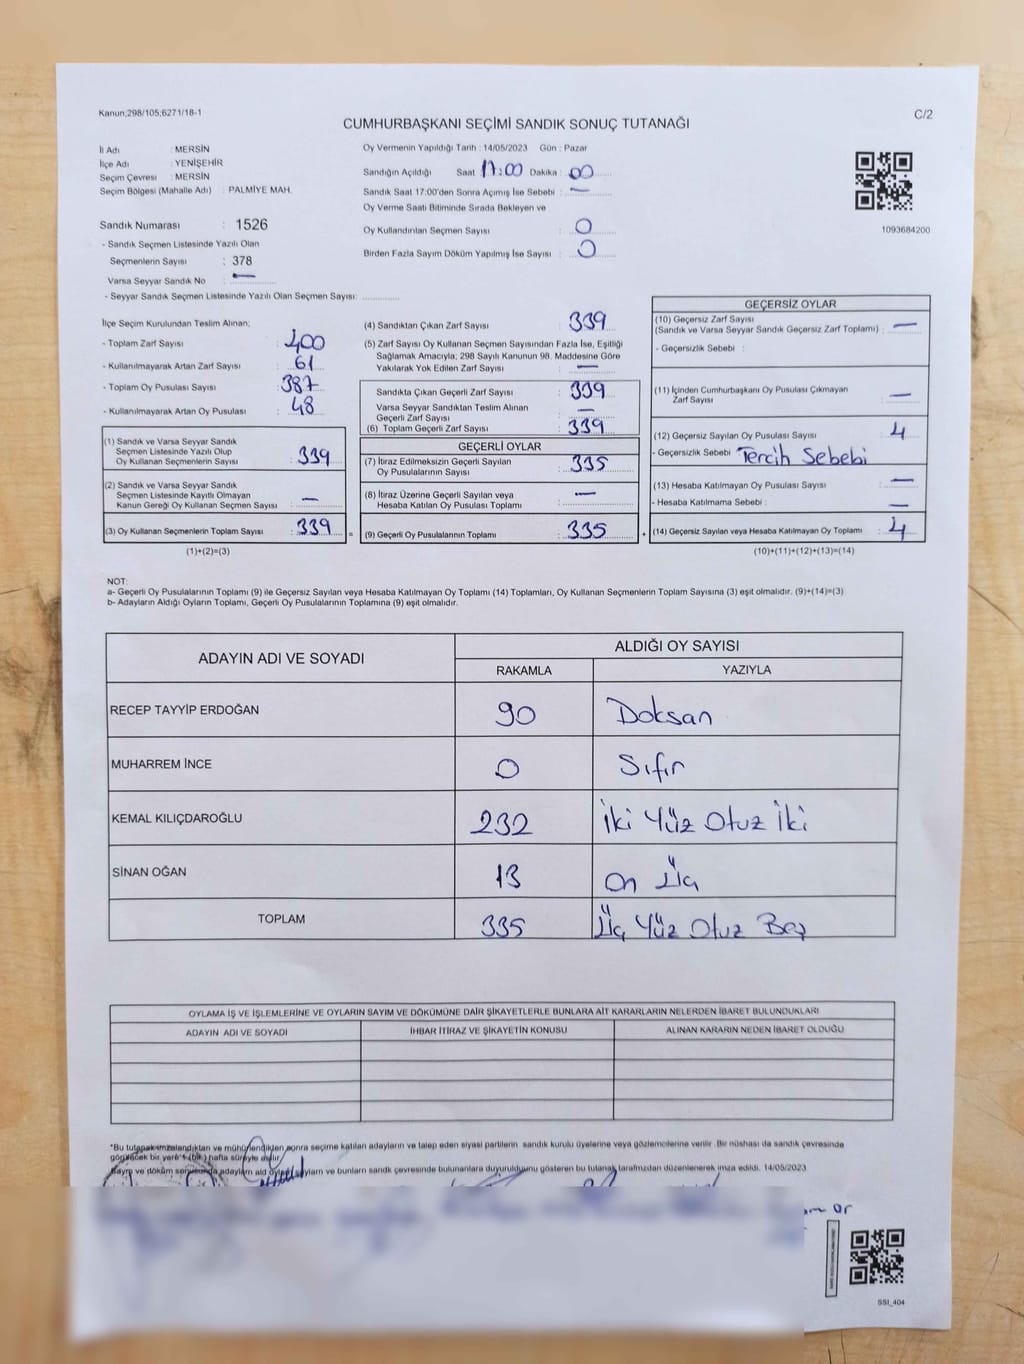 Kanun;298/105;6271/18-1
C/2
CUMHURBAŞKANI SEÇİMİ SANDIK SONUÇ TUTANAĞI
İl Adı : MERSİN
İlçe Adı : YENİŞEHİR
Seçim Çevresi : MERSİN
Seçim Bölgesi (Mahalle Adı) : PALMİYE MAH.
Oy Vermenin Yapıldığı Tarih : 14/05/2023 Gün : Pazar
Sandığın Açıldığı Saat 17:00 Dakika : 00
Sandık Saat 17:00'den Sonra Açımış İse Sebebi : —
Oy Verme Saati Bitiminde Sırada Bekleyen ve
Oy Kullandırılan Seçmen Sayısı : 0
Birden Fazla Sayım Döküm Yapılmış İse Sayısı : 0
1093684200
Sandık Numarası : 1526
- Sandık Seçmen Listesinde Yazılı Olan
Seçmenlerin Sayısı : 378
Varsa Seyyar Sandık No : —
- Seyyar Sandık Seçmen Listesinde Yazılı Olan Seçmen Sayısı: ..............
İlçe Seçim Kurulundan Teslim Alınan;
- Toplam Zarf Sayısı : 400
- Kullanılmayarak Artan Zarf Sayısı : 61
- Toplam Oy Pusulası Sayısı : 387
- Kullanılmayarak Artan Oy Pusulası : 48
(1) Sandık ve Varsa Seyyar Sandık
Seçmen Listesinde Yazılı Olup
Oy Kullanan Seçmenlerin Sayısı : 339
(2) Sandık ve Varsa Seyyar Sandık
Seçmen Listesinde Kayıtlı Olmayan
Kanun Gereği Oy Kullanan Seçmen Sayısı : —
(3) Oy Kullanan Seçmenlerin Toplam Sayısı : 339 =
(1)+(2)=(3)
(4) Sandıktan Çıkan Zarf Sayısı : 339
(5) Zarf Sayısı Oy Kullanan Seçmen Sayısından Fazla İse, Eşitliği
Sağlamak Amacıyla; 298 Sayılı Kanunun 98. Maddesine Göre
Yakılarak Yok Edilen Zarf Sayısı : —
Sandıkta Çıkan Geçerli Zarf Sayısı : 339
Varsa Seyyar Sandıktan Teslim Alınan
Geçerli Zarf Sayısı : —
(6) Toplam Geçerli Zarf Sayısı : 339
GEÇERLİ OYLAR
(7) İtiraz Edilmeksizin Geçerli Sayılan
Oy Pusulalarının Sayısı : 335
(8) İtiraz Üzerine Geçerli Sayılan veya
Hesaba Katılan Oy Pusulası Toplamı : —
(9) Geçerli Oy Pusulalarının Toplamı : 335 +
GEÇERSİZ OYLAR
(10) Geçersiz Zarf Sayısı
(Sandık ve Varsa Seyyar Sandık Geçersiz Zarf Toplamı) : —
- Geçersizlik Sebebi :
(11) İçinden Cumhurbaşkanı Oy Pusulası Çıkmayan
Zarf Sayısı : —
(12) Geçersiz Sayılan Oy Pusulası Sayısı : 4
- Geçersizlik Sebebi : Tercih Sebebi
(13) Hesaba Katılmayan Oy Pusulası Sayısı : —
- Hesaba Katılmama Sebebi : —
(14) Geçersiz Sayılan veya Hesaba Katılmayan Oy Toplamı : 4
(10)+(11)+(12)+(13)=(14)
NOT:
a- Geçerli Oy Pusulalarının Toplamı (9) ile Geçersiz Sayılan veya Hesaba Katılmayan Oy Toplamı (14) Toplamları, Oy Kullanan Seçmenlerin Toplam Sayısına (3) eşit olmalıdır. (9)+(14)=(3)
b- Adayların Aldığı Oyların Toplamı, Geçerli Oy Pusulalarının Toplamına (9) eşit olmalıdır.
ADAYIN ADI VE SOYADI ALDIĞI OY SAYISI
RAKAMLA YAZIYLA
RECEP TAYYİP ERDOĞAN 90 Doksan
MUHARREM İNCE 0 Sıfır
KEMAL KILIÇDAROĞLU 232 İki Yüz Otuz İki
SİNAN OĞAN 13 On Üç
TOPLAM 335 Üç Yüz Otuz Beş
OYLAMA İŞ VE İŞLEMLERİNE VE OYLARIN SAYIM VE DÖKÜMÜNE DAİR ŞİKAYETLERLE BUNLARA AİT KARARLARIN NELERDEN İBARET BULUNDUKLARI
ADAYIN ADI VE SOYADI İHBAR İTİRAZ VE ŞİKAYETİN KONUSU ALINAN KARARIN NEDEN İBARET OLDUĞU
*Bu tutanak imzalandıktan ve mühürlendikten sonra seçime katılan adayların ve talep eden siyasi partilerin sandık kurulu üyelerine veya gözlemcilerine verilir. Bir nüshası da sandık çevresinde
görülecek bir yere 1 (bir) hafta süreyle asılır.
Sayım ve döküm sonucunda adayların aldığı oyların ve bunların sandık çevresinde bulunanlara duyurulduğunu gösteren bu tutanak tarafımızdan düzenlenerek imza edildi. 14/05/2023
SSI_404